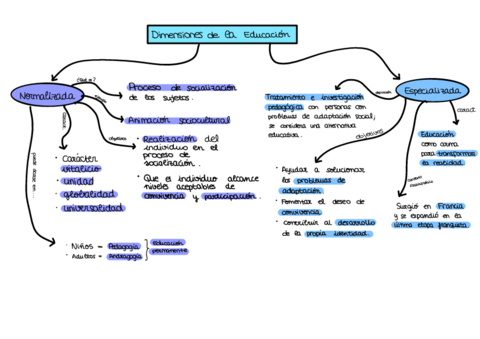 Dimensiones de la Educación
Normalizada
¿Qué es?
Proceso de socialización
de los sujetos.
Animación sociocultural
objetivos
· Realización del
individuo en el
proceso de
socialización.
· Que el individuo alcance
niveles aceptables de
convivencia y participación.
· Carácter
vitalicio
· unidad
· globalidad
· universalidad
· Niños = Pedagogía
· Adultos = Andragogía
Educación
permanente
Especializada
Tratamiento e investigación
pedagógica con personas con
problemas de adaptación social;
se considera una alternativa
educativa.
objetivos
· Ayudar a solucionar
los problemas de
adaptación.
· Fomentar el deseo de
convivencia
· Contribuir al desarrollo
de la propia identidad.
caract.
Educación
como arma
para transformar
la realidad.
Surgió en Francia
y se expandió en la
última etapa franquista.